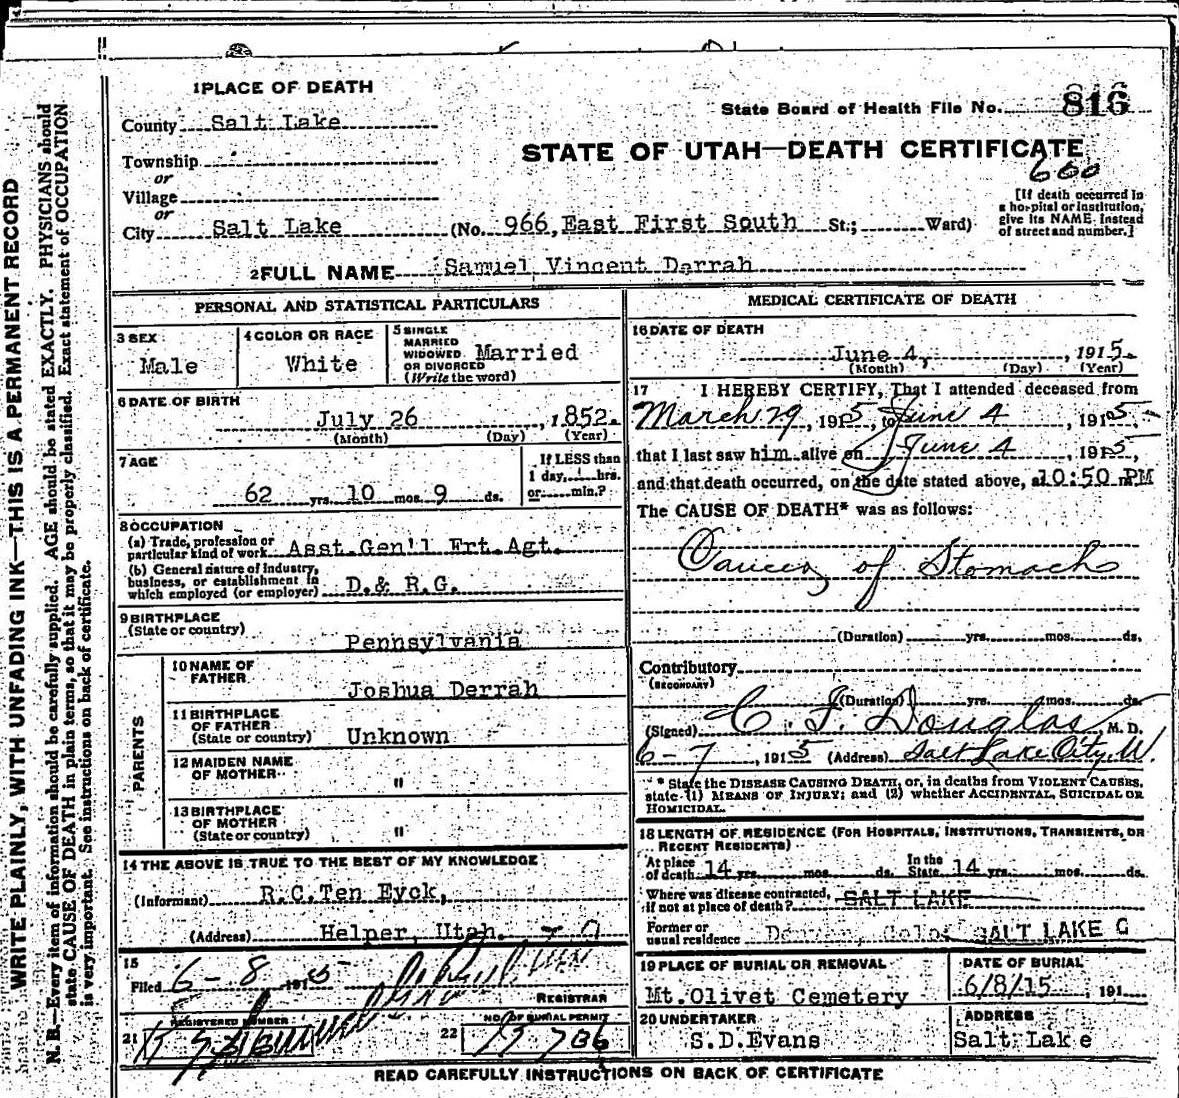 WRITE PLAINLY, WITH UNFADING INK—THIS IS A PERMANENT RECORD
N. B.—Every item of information should be carefully supplied. AGE should be stated EXACTLY. PHYSICIANS should
state CAUSE OF DEATH in plain terms, so that it may be properly classified. Exact statement of OCCUPATION
is very important. See instructions on back of certificate.
1 PLACE OF DEATH
State Board of Health File No. 816
County Salt Lake
STATE OF UTAH—DEATH CERTIFICATE
600
Township
or
Village
or
City Salt Lake (No. 966, East First South St.; Ward)
[If death occurred in
a hospital or institution,
give its NAME instead
of street and number.]
2 FULL NAME Samuel Vincent Derrah
PERSONAL AND STATISTICAL PARTICULARS
3 SEX
Male
4 COLOR OR RACE
White
5 SINGLE
MARRIED
WIDOWED
OR DIVORCED
(Write the word)
Married
6 DATE OF BIRTH
July 26, 1852.
(Month) (Day) (Year)
7 AGE
62 yrs. 10 mos. 9 ds.
If LESS than
1 day, hrs.
or min.?
8 OCCUPATION
(a) Trade, profession or
particular kind of work Asst.Gen'l Frt.Agt.
(b) General nature of industry,
business, or establishment in
which employed (or employer) D.& R.G.
9 BIRTHPLACE
(State or country)
Pennsylvania
PARENTS
10 NAME OF
FATHER
Joshua Derrah
11 BIRTHPLACE
OF FATHER
(State or country) Unknown
12 MAIDEN NAME
OF MOTHER "
13 BIRTHPLACE
OF MOTHER
(State or country) "
14 THE ABOVE IS TRUE TO THE BEST OF MY KNOWLEDGE
(Informant) R.C.Ten Eyck,
(Address) Helper, Utah.
15
Filed 6-8 1915
REGISTRAR
REGISTERED NUMBER
21
NO. OF BURIAL PERMIT
22
MEDICAL CERTIFICATE OF DEATH
16 DATE OF DEATH
June 4, , 1915.
(Month) (Day) (Year)
17 I HEREBY CERTIFY, That I attended deceased from
March 29, 1915, to June 4, 1915,
that I last saw him alive on June 4, 1915,
and that death occurred, on the date stated above, at 10:50 PM
The CAUSE OF DEATH* was as follows:
Cancer of Stomach
(Duration) yrs. mos. ds.
Contributory
(SECONDARY)
(Duration) yrs. mos. ds.
(Signed) C. F. Douglas M. D.
6-7, 1915 (Address) Salt Lake City, U.
* State the DISEASE CAUSING DEATH, or, in deaths from VIOLENT CAUSES,
state (1) MEANS OF INJURY; and (2) whether ACCIDENTAL, SUICIDAL OR
HOMICIDAL.
18 LENGTH OF RESIDENCE (FOR HOSPITALS, INSTITUTIONS, TRANSIENTS, OR
RECENT RESIDENTS)
At place
of death 14 yrs. mos. ds. In the
State 14 yrs. mos. ds.
Where was disease contracted,
if not at place of death? SALT LAKE
Former or
usual residence SALT LAKE C
19 PLACE OF BURIAL OR REMOVAL
Mt.Olivet Cemetery
DATE OF BURIAL
6/8/15, 191
20 UNDERTAKER
S.D.Evans
ADDRESS
Salt Lake
READ CAREFULLY INSTRUCTIONS ON BACK OF CERTIFICATE